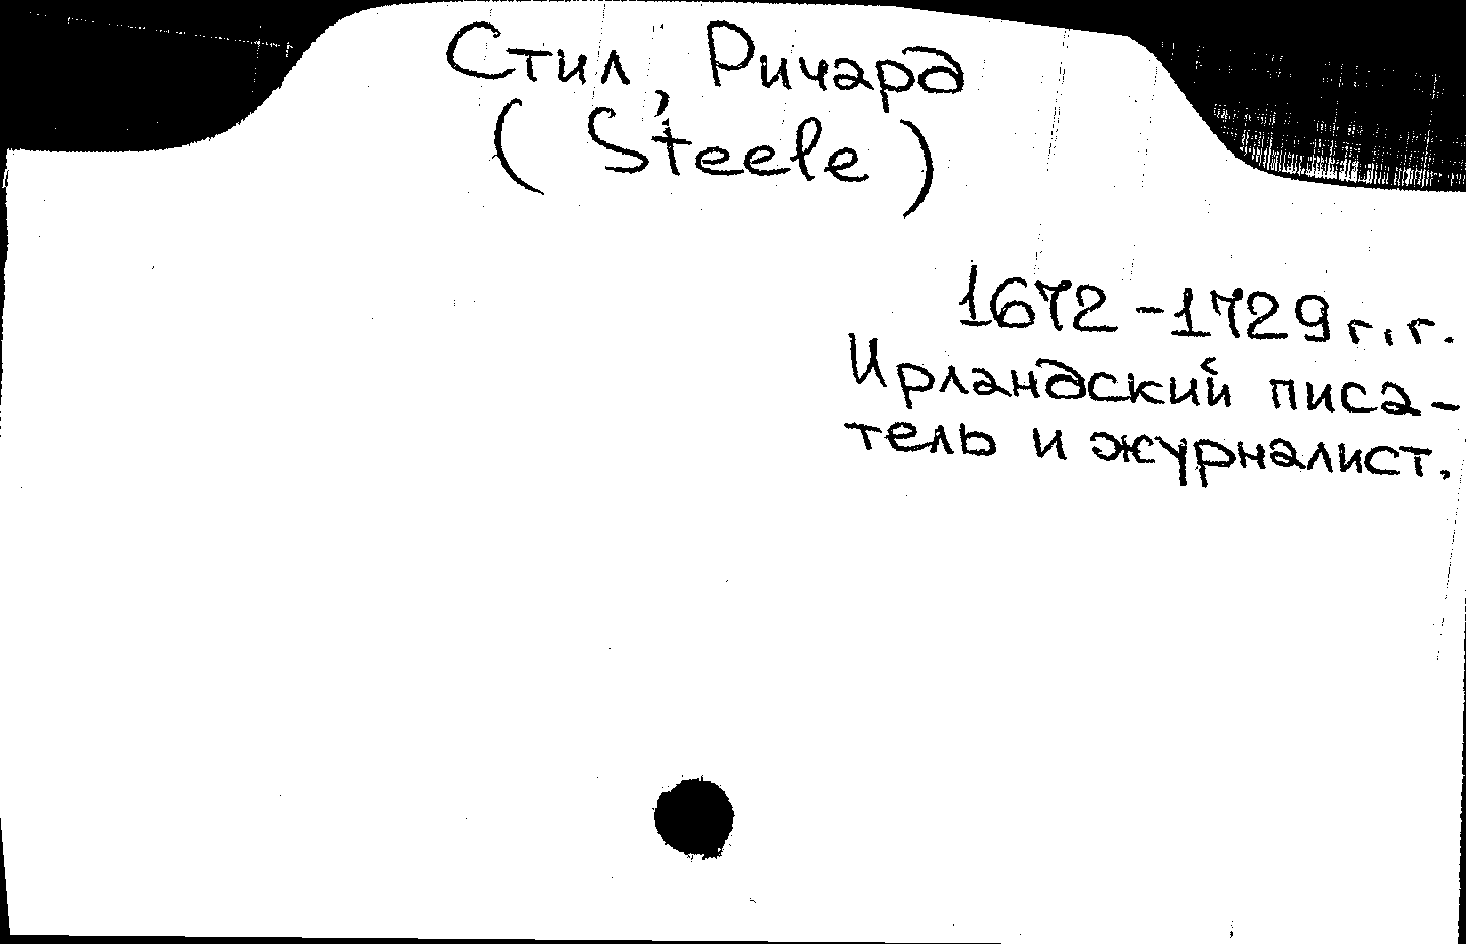 Стил, Ричард
( Steele )
1672-1729 г.г.
Ирландский писа-
тель и журналист.